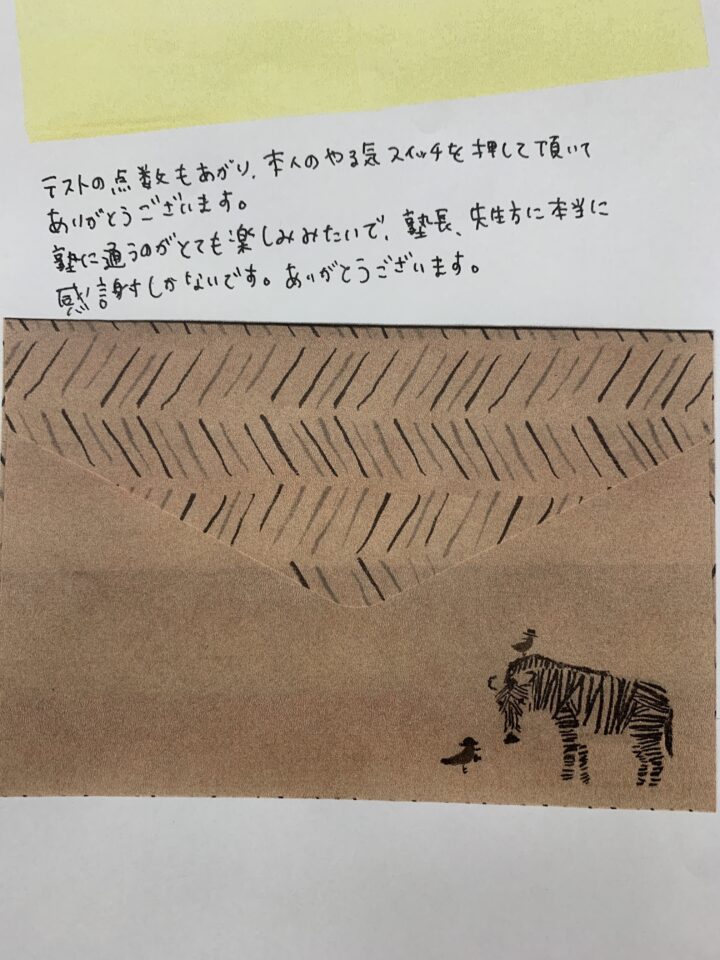 テストの点数もあがり、本人のやる気スイッチを押して頂いて
ありがとうございます。
塾に通うのがとても楽しみみたいで、塾長、先生方に本当に
感謝しかないです。ありがとうございます。